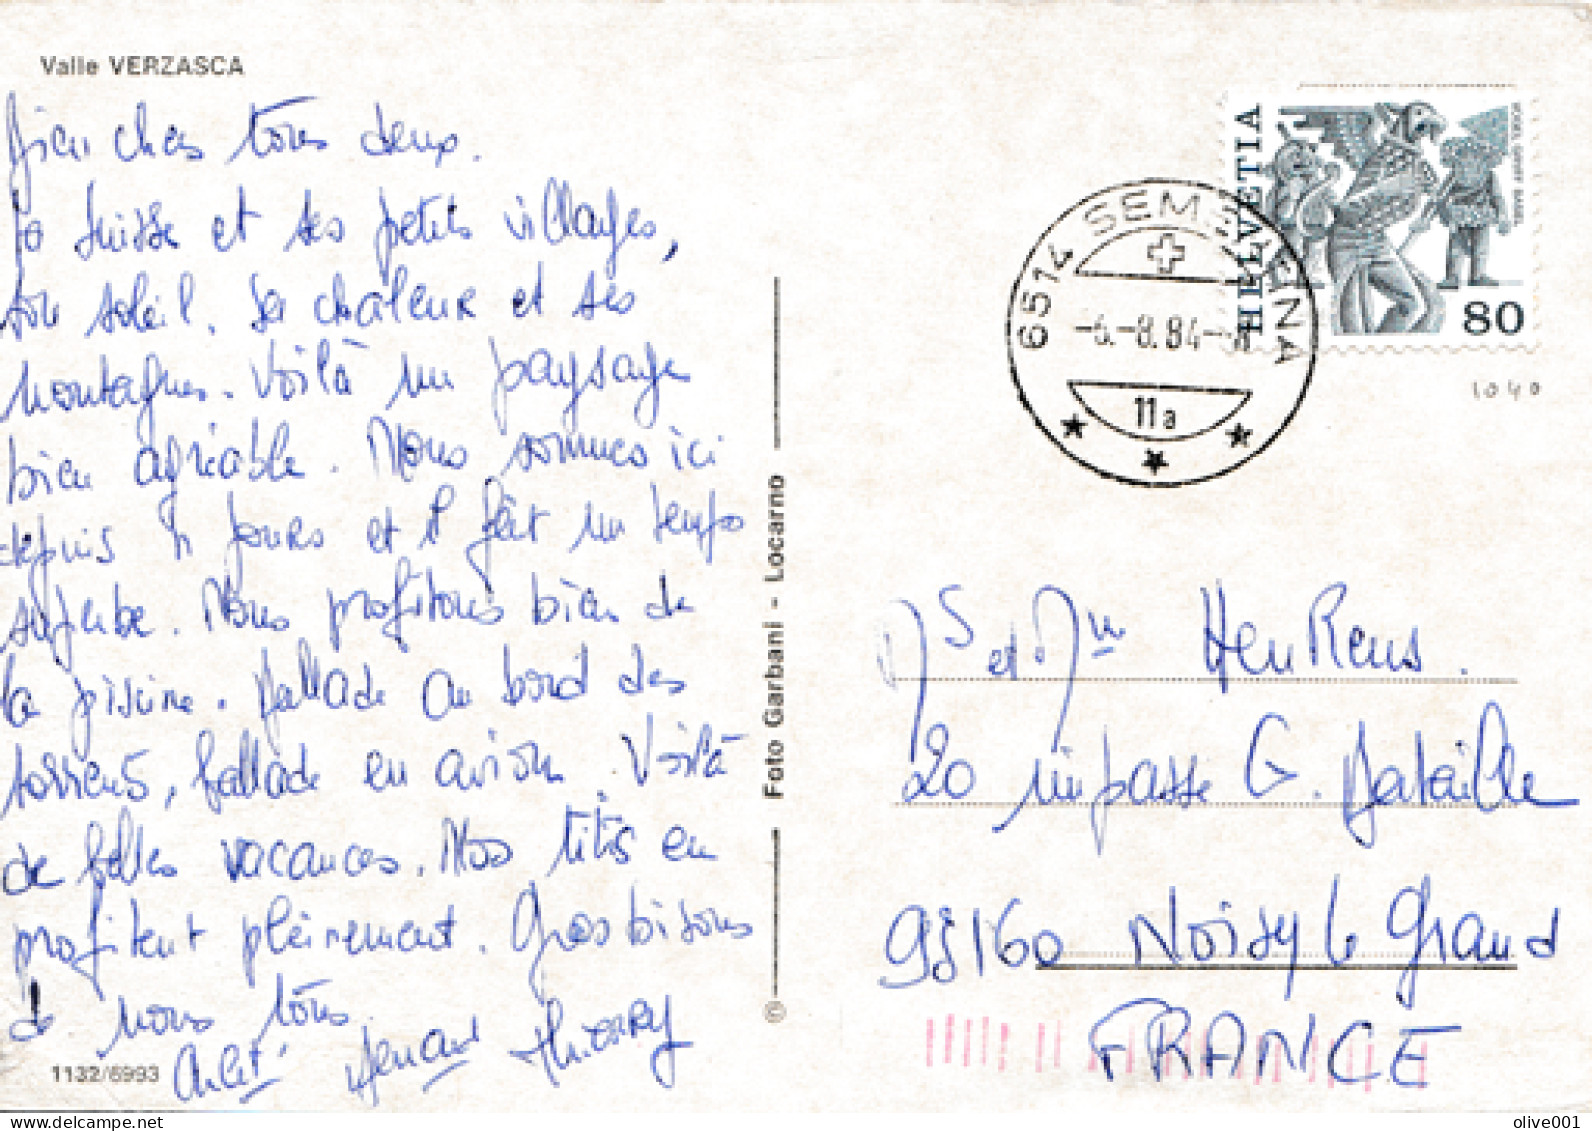 Valle VERZASCA
Bien chers tous deux.
la Suisse et ses petits villages,
son soleil. Sa chaleur et ses
montagnes. Voilà un paysage
bien agréable. Nous sommes ici
depuis jours et il fait un temps
superbe. Nous profitons bien de
la piscine. Ballade au bord des
torrents, ballade en avion. Voilà
de belles vacances. Nos titis en
profitent pleinement. Gros bisous
de nous tous.
Bernard Thierry
1132/6993
Foto Garbani - Locarno
©
HELVETIA
80
6514 SEMENTINA
-6.-8.84-
11a
1040
et Mme HenRens.
20 impasse G. Bataille
93160 Noisy le Grand
FRANCE
olive001